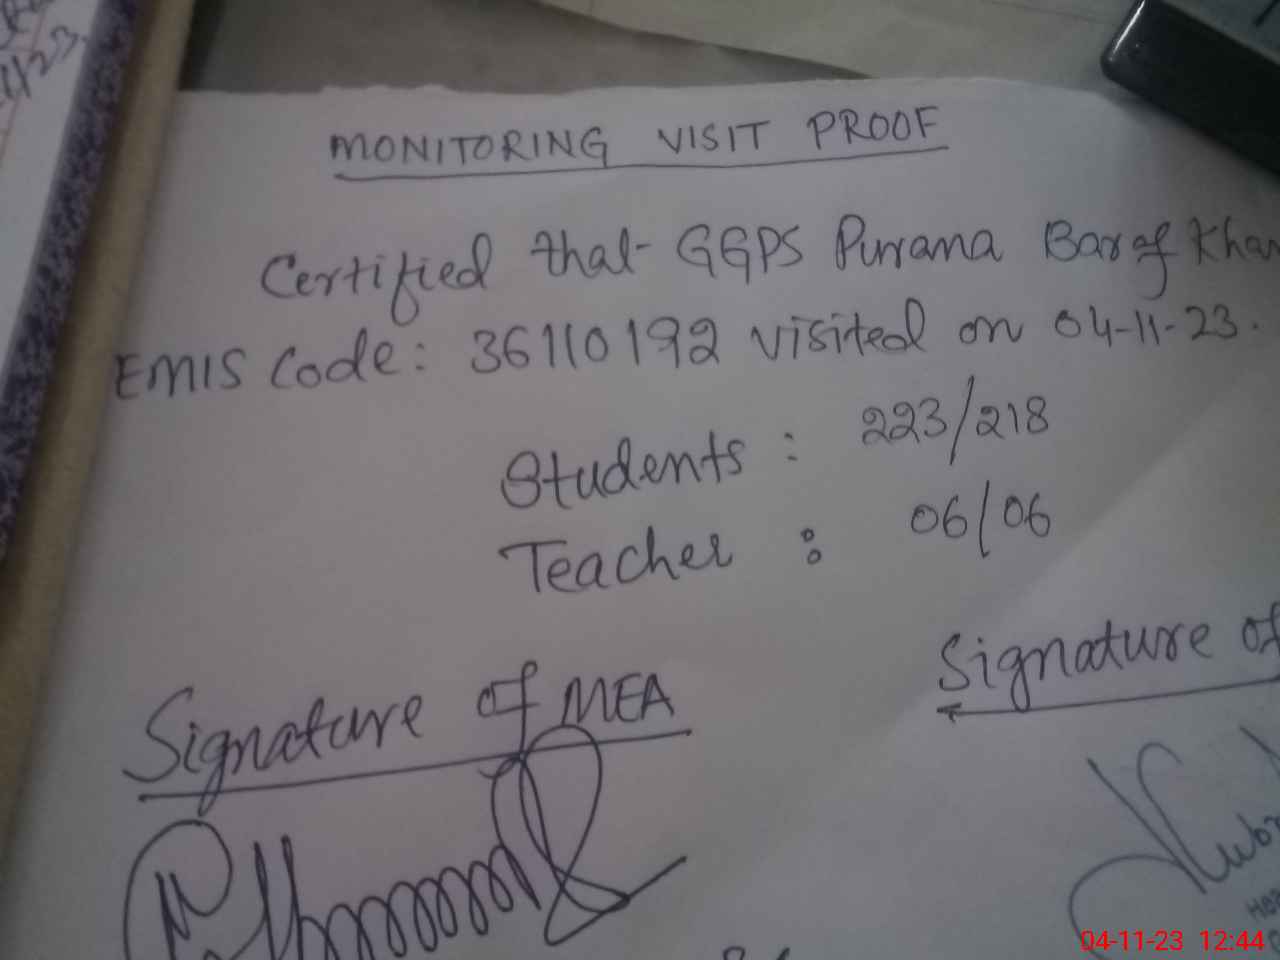 MONITORING VISIT PROOF
Certified that GGPS Purrana Baraf Khan
EMIS Code: 36110192 visited on 04-11-23.
Students : 223/218
Teacher : 06/06
Signature of MEA
Signature of
04-11-23 12:44